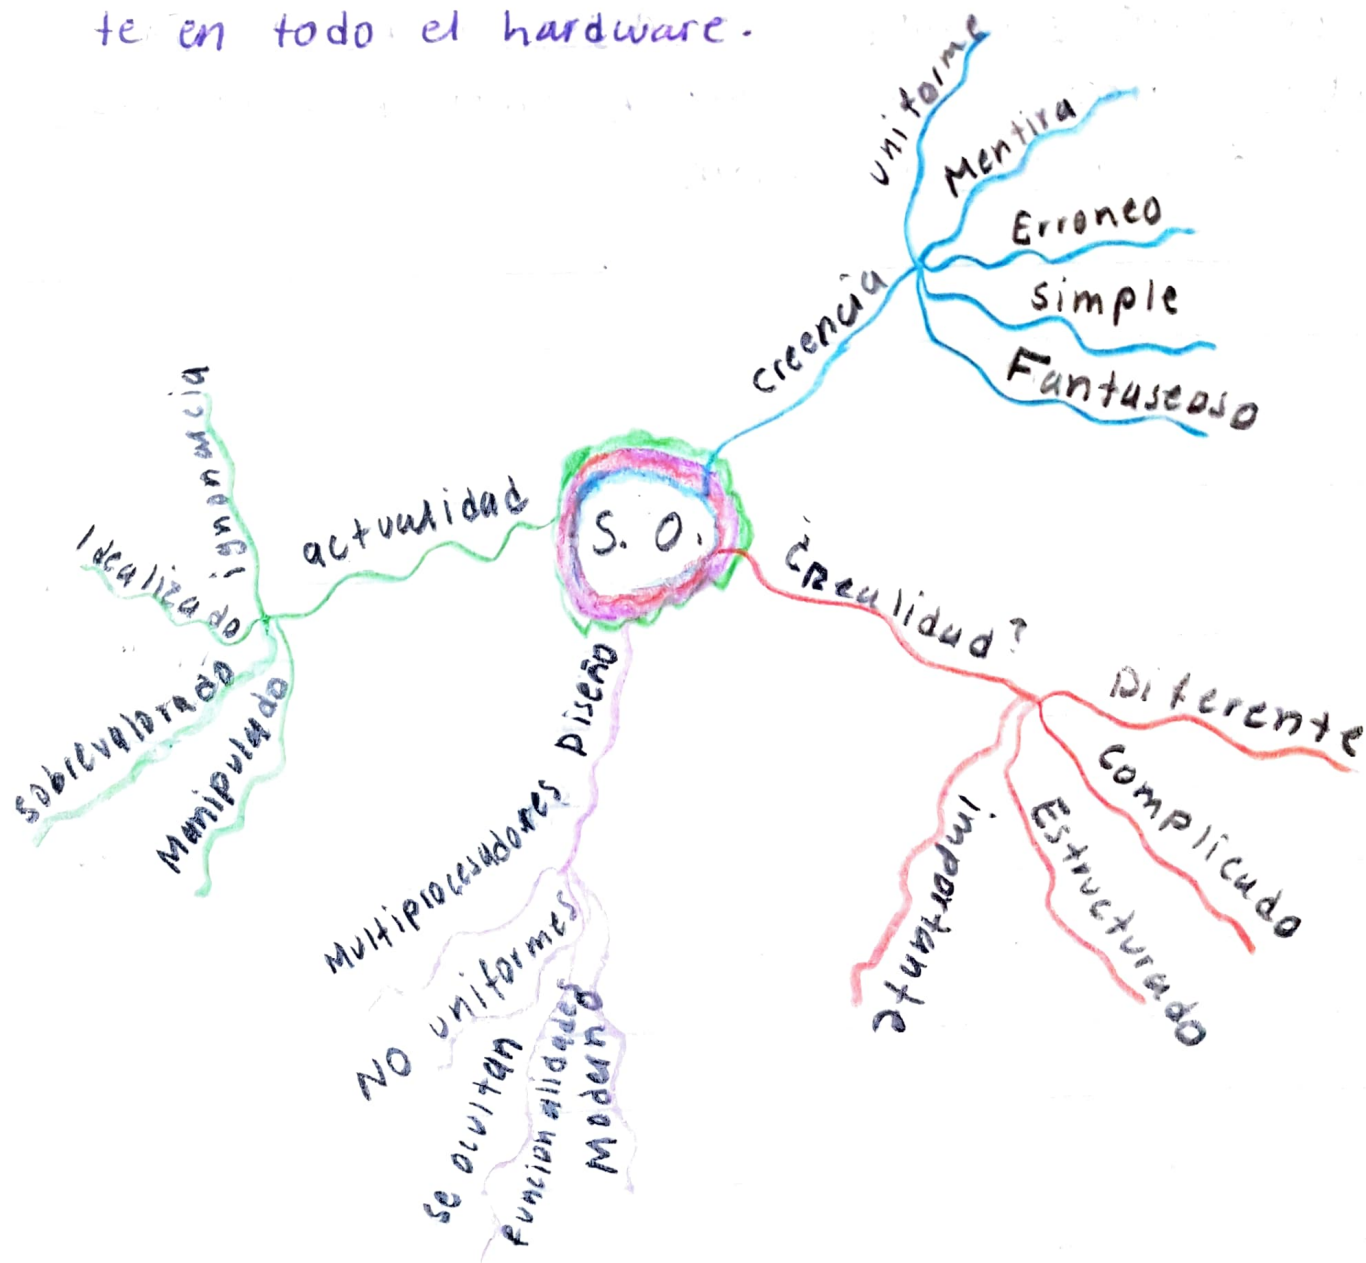 te en todo el hardware.
S. O.
creencia
uniforme
Mentira
Erroneo
simple
Fantaseoso
¿Realidad?
Diferente
Complicado
Estructurado
importante
Diseño
Multiprocesadores
NO uniformes
se ocultan
funcionalidades
Moderno
actualidad
ignorancia
Idealizado
sobrevalorado
Manipulado